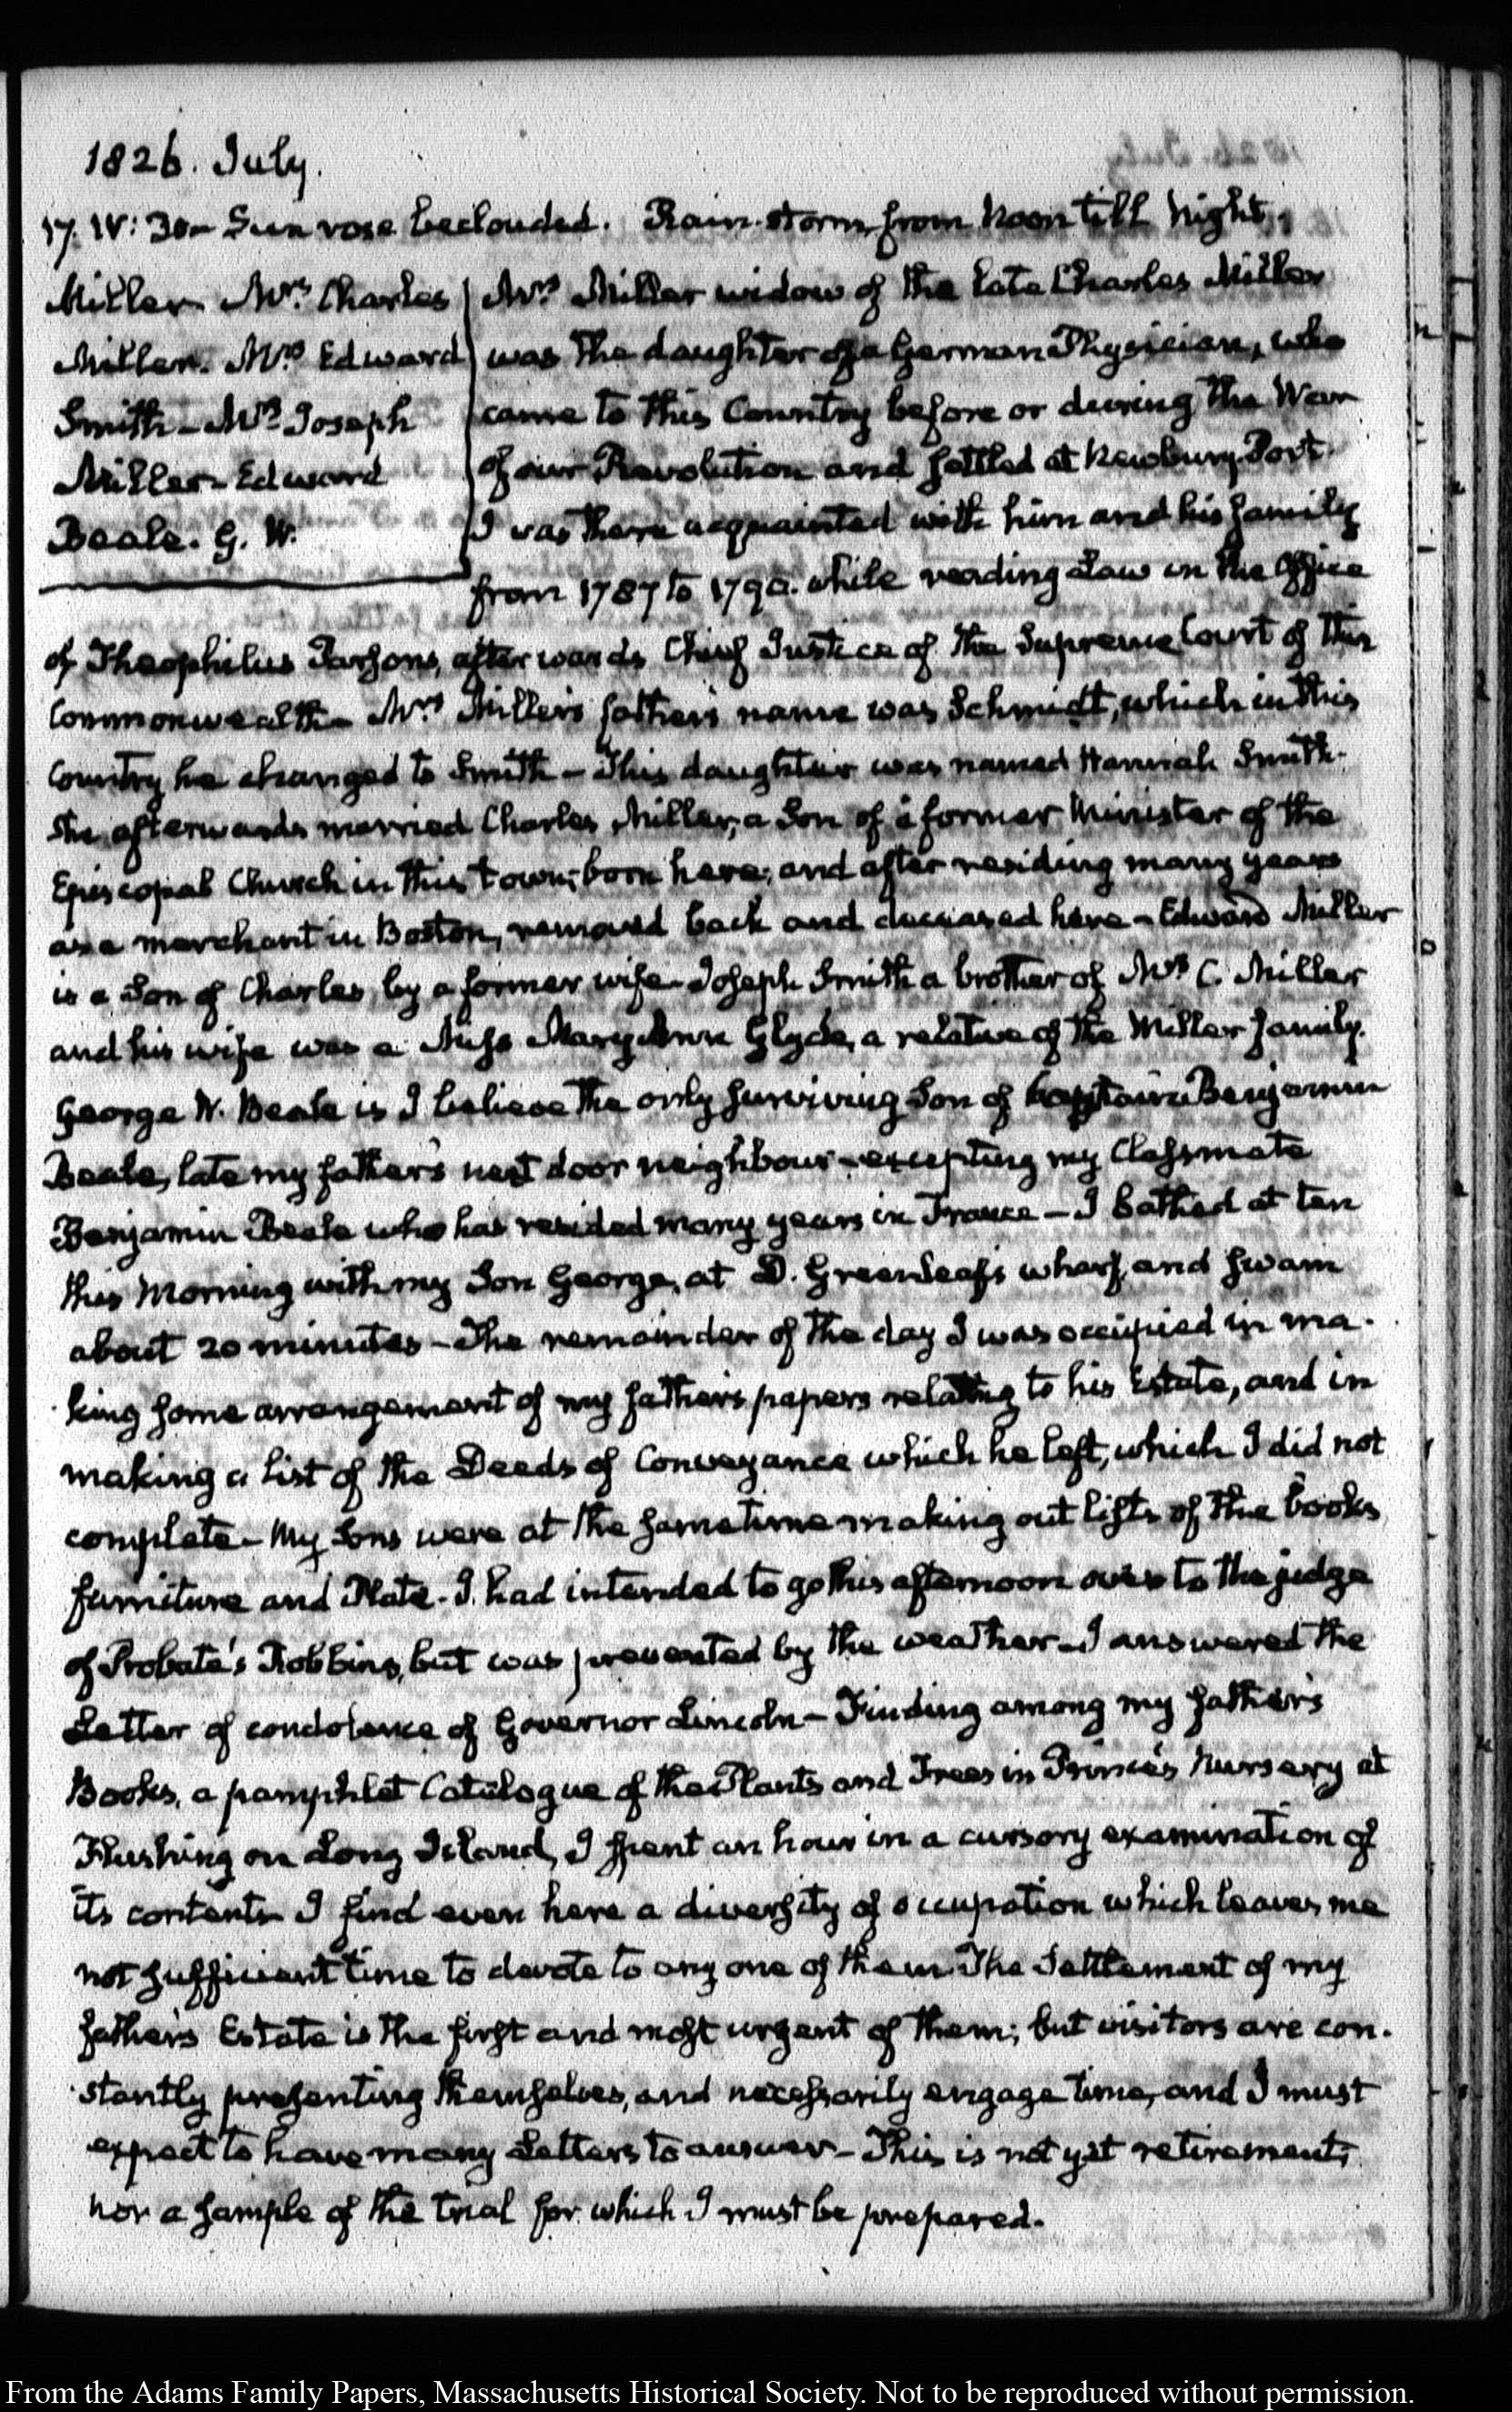 1826. July.
17. IV: 30 – Sun rose beclouded. Rain-storm from Noon till Night.
Miller – Mrs Charles
Miller. Mrs Edward
Smith – Mrs Joseph
Miller – Edward
Beale. G. W.
Mrs Miller widow of the late Charles Miller
was the daughter of a German Physician, who
came to this Country before or during the War
of our Revolution and settled at Newbury-Port.
I was there acquainted with him and his family
from 1787 to 1790. while reading Law in the Office
of Theophilus Parsons, afterwards Chief Justice of the Supreme Court of this
Commonwealth – Mrs Miller's father's name was Schmidt, which in this
Country he changed to Smith – This daughter was named Hannah Smith.
She afterwards married Charles Miller, a Son of a former Minister of the
Episcopal Church in this town; born here; and after residing many years
as a merchant in Boston, removed back and deceased here – Edward Miller
is a Son of Charles by a former wife – Joseph Smith a brother of Mrs C. Miller
and his wife was a Miss Mary Ann Glyde, a relative of the Miller family.
George W. Beale is I believe the only surviving Son of Captain Benjamin
Beale, late my father's next door neighbour – excepting my Classmate
Benjamin Beale who has resided many years in France – I bathed at ten
this Morning with my Son George, at D. Greenleaf's wharf, and swam
about 20 minutes – The remainder of the day I was occupied in ma-
king some arrangement of my father's papers relating to his Estate, and in
making a list of the Deeds of Conveyance which he left, which I did not
complete – My Sons were at the same time making out lists of the books
furniture and Plate. I had intended to go this afternoon over to the judge
of Probate's Robbins, but was prevented by the weather – I answered the
Letter of condolence of Governor Lincoln – Finding among my father's
Books, a pamphlet Catalogue of the Plants and Trees in Prince's Nursery at
Flushing on Long Island, I spent an hour in a cursory examination of
its contents – I find even here a diversity of occupation which leaves me
not sufficient time to devote to any one of them. The Settlement of my
father's Estate is the first and most urgent of them; but visitors are con-
stantly presenting themselves, and necessarily engage time, and I must
expect to have many Letters to answer – This is not yet retirement;
nor a sample of the trial for which I must be prepared.
From the Adams Family Papers, Massachusetts Historical Society. Not to be reproduced without permission.